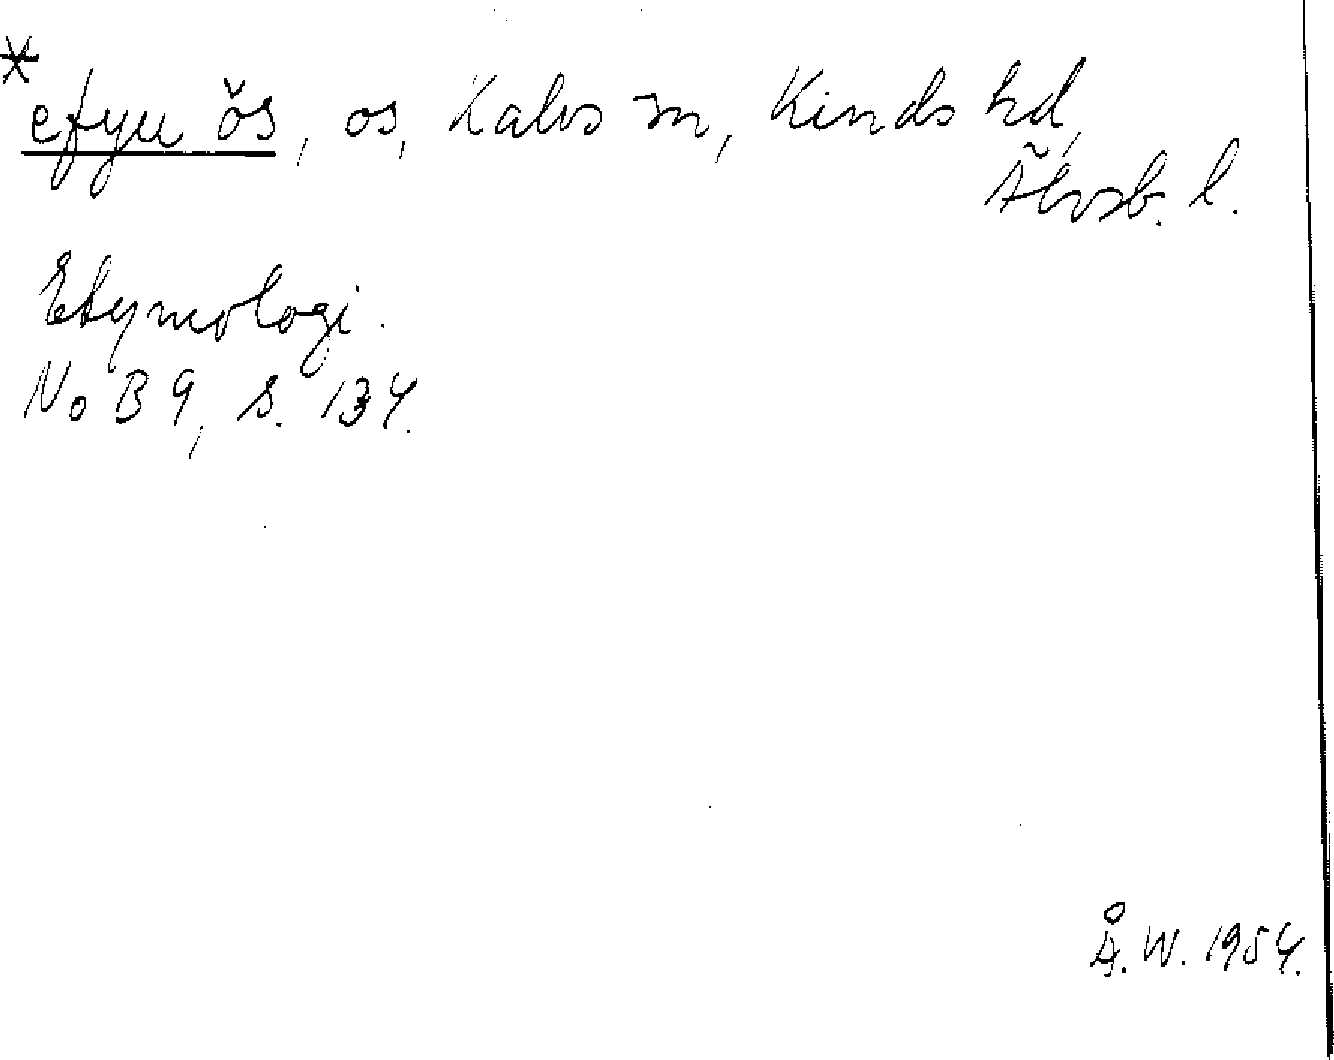 * efyu ŏs, os, Kalvs sn, Kinds hd,
Älvsb. l.
Etymologi.
NoB 9, s. 134.
Å. W. 1954.